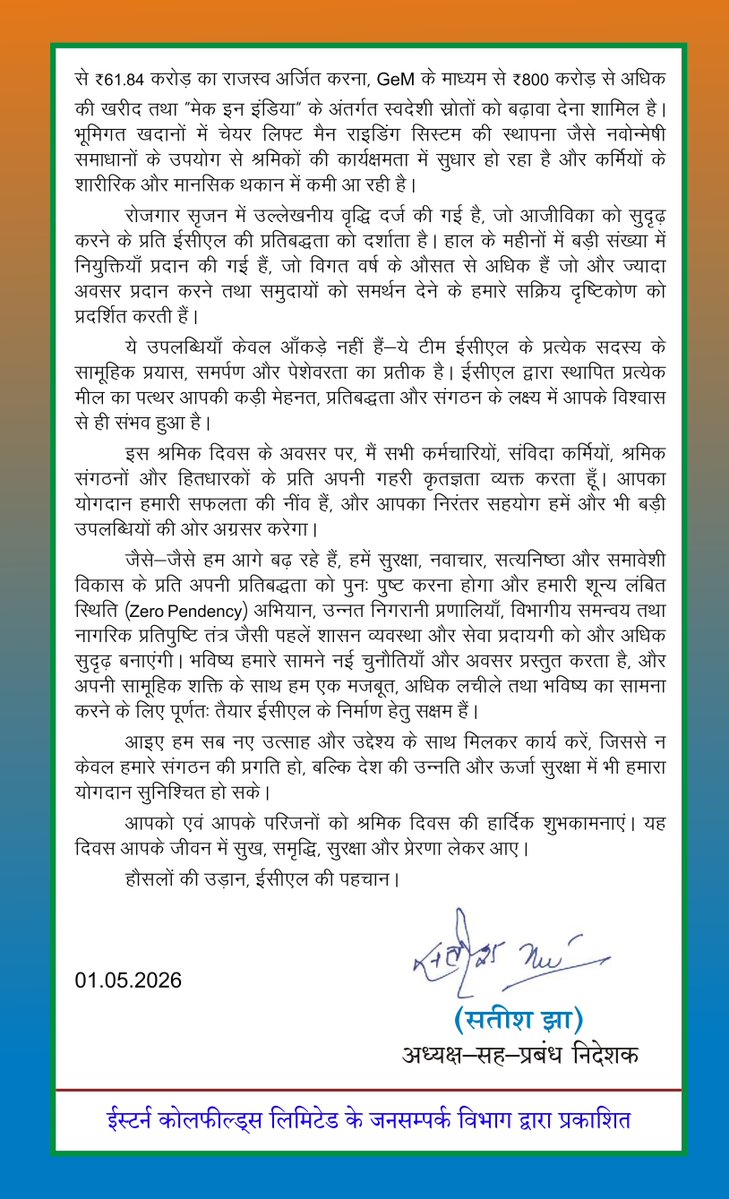 से ₹61.84 करोड़ का राजस्व अर्जित करना, GeM के माध्यम से ₹800 करोड़ से अधिक
की खरीद तथा "मेक इन इंडिया" के अंतर्गत स्वदेशी स्रोतों को बढ़ावा देना शामिल है।
भूमिगत खदानों में चेयर लिफ्ट मैन राइडिंग सिस्टम की स्थापना जैसे नवोन्मेषी
समाधानों के उपयोग से श्रमिकों की कार्यक्षमता में सुधार हो रहा है और कर्मियों के
शारीरिक और मानसिक थकान में कमी आ रही है।
रोजगार सृजन में उल्लेखनीय वृद्धि दर्ज की गई है, जो आजीविका को सुदृढ़
करने के प्रति ईसीएल की प्रतिबद्धता को दर्शाता है। हाल के महीनों में बड़ी संख्या में
नियुक्तियाँ प्रदान की गई हैं, जो विगत वर्ष के औसत से अधिक हैं जो और ज्यादा
अवसर प्रदान करने तथा समुदायों को समर्थन देने के हमारे सक्रिय दृष्टिकोण को
प्रदर्शित करती हैं।
ये उपलब्धियाँ केवल आँकड़े नहीं हैं–ये टीम ईसीएल के प्रत्येक सदस्य के
सामूहिक प्रयास, समर्पण और पेशेवरता का प्रतीक है। ईसीएल द्वारा स्थापित प्रत्येक
मील का पत्थर आपकी कड़ी मेहनत, प्रतिबद्धता और संगठन के लक्ष्य में आपके विश्वास
से ही संभव हुआ है।
इस श्रमिक दिवस के अवसर पर, मैं सभी कर्मचारियों, संविदा कर्मियों, श्रमिक
संगठनों और हितधारकों के प्रति अपनी गहरी कृतज्ञता व्यक्त करता हूँ। आपका
योगदान हमारी सफलता की नींव हैं, और आपका निरंतर सहयोग हमें और भी बड़ी
उपलब्धियों की ओर अग्रसर करेगा।
जैसे–जैसे हम आगे बढ़ रहे हैं, हमें सुरक्षा, नवाचार, सत्यनिष्ठा और समावेशी
विकास के प्रति अपनी प्रतिबद्धता को पुनः पुष्ट करना होगा और हमारी शून्य लंबित
स्थिति (Zero Pendency) अभियान, उन्नत निगरानी प्रणालियाँ, विभागीय समन्वय तथा
नागरिक प्रतिपुष्टि तंत्र जैसी पहलें शासन व्यवस्था और सेवा प्रदायगी को और अधिक
सुदृढ़ बनाएंगी। भविष्य हमारे सामने नई चुनौतियाँ और अवसर प्रस्तुत करता है, और
अपनी सामूहिक शक्ति के साथ हम एक मजबूत, अधिक लचीले तथा भविष्य का सामना
करने के लिए पूर्णतः तैयार ईसीएल के निर्माण हेतु सक्षम हैं।
आइए हम सब नए उत्साह और उद्देश्य के साथ मिलकर कार्य करें, जिससे न
केवल हमारे संगठन की प्रगति हो, बल्कि देश की उन्नति और ऊर्जा सुरक्षा में भी हमारा
योगदान सुनिश्चित हो सके।
आपको एवं आपके परिजनों को श्रमिक दिवस की हार्दिक शुभकामनाएं। यह
दिवस आपके जीवन में सुख, समृद्धि, सुरक्षा और प्रेरणा लेकर आए।
हौसलों की उड़ान, ईसीएल की पहचान।
सतीश झा
01.05.2026
(सतीश झा)
अध्यक्ष–सह–प्रबंध निदेशक
ईस्टर्न कोलफील्ड्स लिमिटेड के जनसम्पर्क विभाग द्वारा प्रकाशित